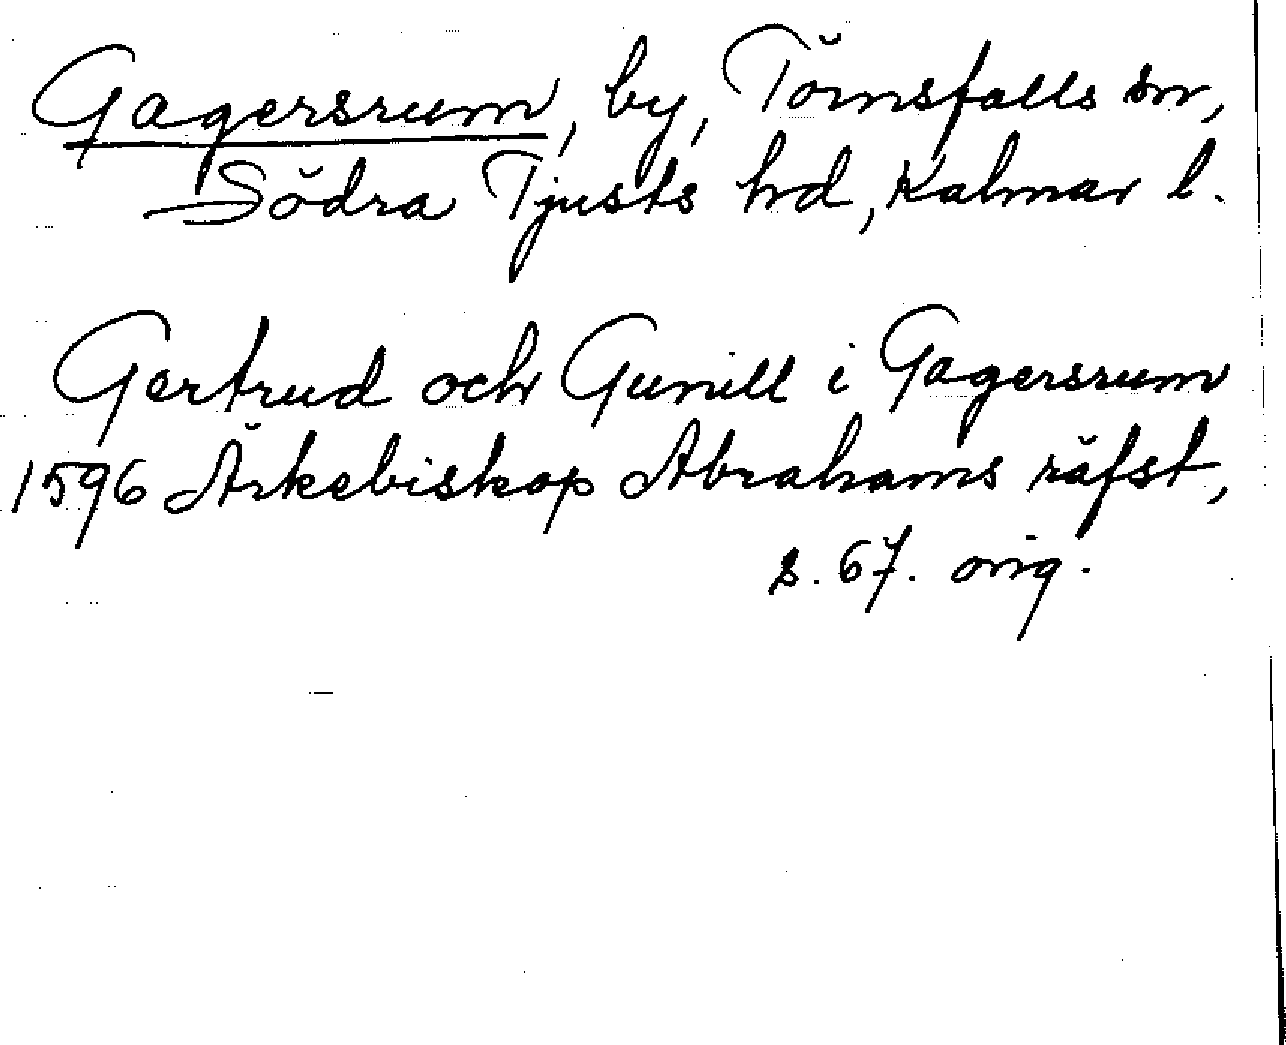 Gagersrum, by, Törnsfalls sn,
Södra Tjusts hd, Kalmar l.
Gertrud och Gunill i Gagersrum
1596 Ärkebiskop Abrahams räfst,
s. 67. orig.